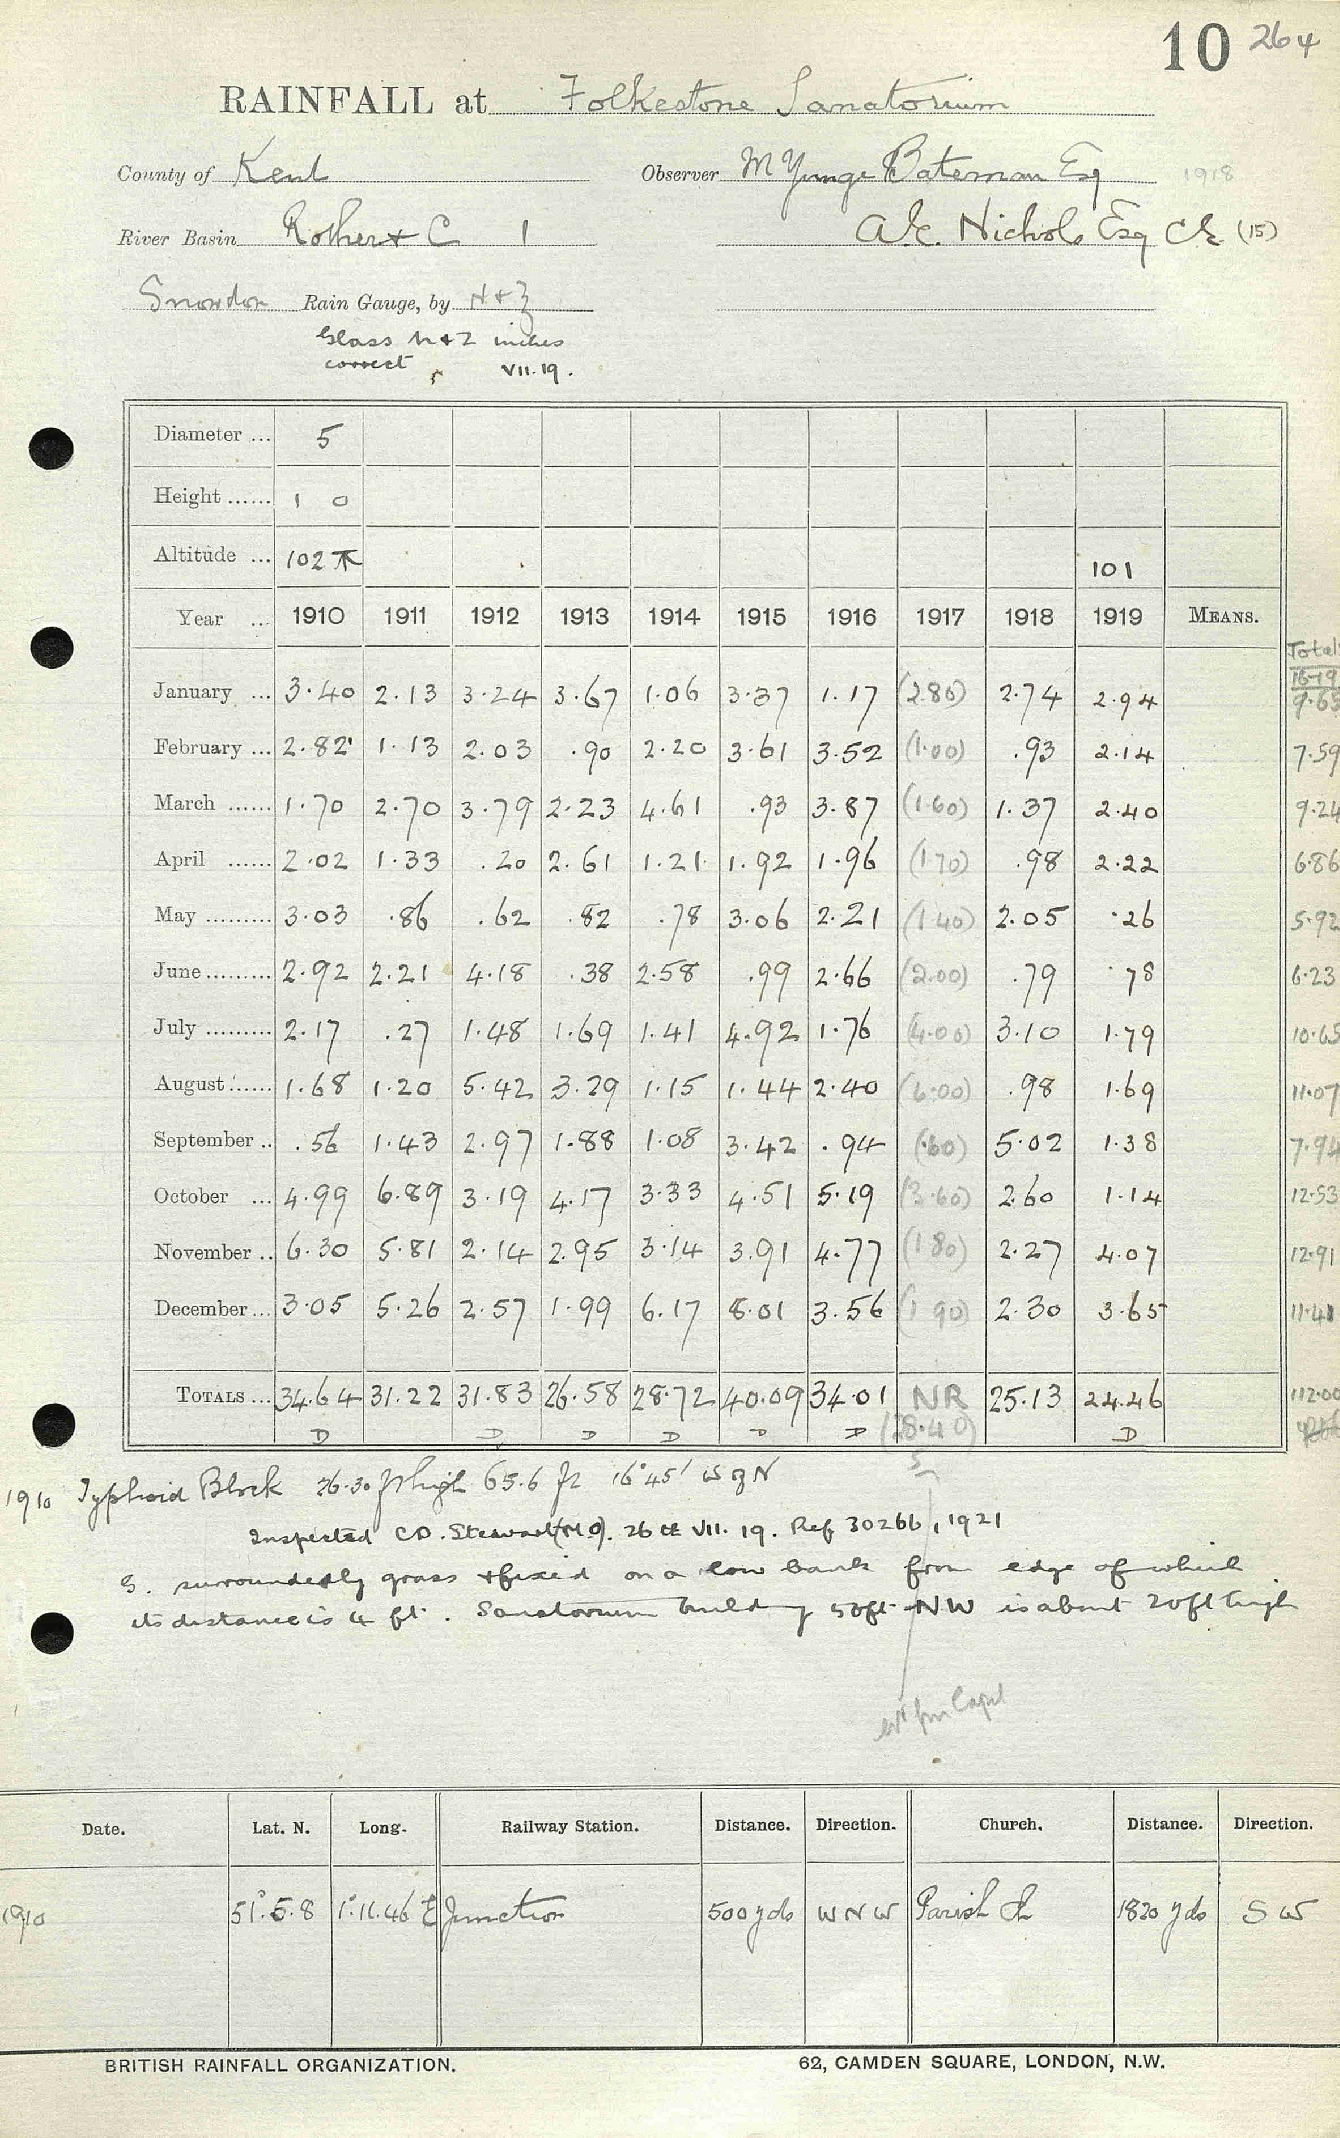 10 264
RAINFALL at Folkestone Sanatorium
County of Kent Observer M Yunge Bateman Esq 1918
River Basin Rother & C 1 A.E. Nichols Esq CE (15)
Snowdon Rain Gauge, by N + Z
Glass N + Z inches
correct VII.19.
Diameter ... 5
Height ...... 1 0
Altitude ... 102 101
Year ... 1910 1911 1912 1913 1914 1915 1916 1917 1918 1919 MEANS.
Total
16-19
January ... 3.40 2.13 3.24 3.67 1.06 3.37 1.17 (2.80) 2.74 2.94 9.65
February ... 2.82 1.13 2.03 .90 2.20 3.61 3.52 (1.00) .93 2.14 7.59
March ...... 1.70 2.70 3.79 2.23 4.61 .93 3.87 (1.60) 1.37 2.40 9.24
April ...... 2.02 1.33 .20 2.61 1.21 1.92 1.96 (1.70) .98 2.22 6.86
May ......... 3.03 .86 .62 .82 .78 3.06 2.21 (1.40) 2.05 .26 5.92
June ......... 2.92 2.21 4.18 .38 2.58 .99 2.66 (2.00) .79 .78 6.23
July ......... 2.17 .27 1.48 1.69 1.41 4.92 1.76 (4.00) 3.10 1.79 10.65
August ...... 1.68 1.20 5.42 3.29 1.15 1.44 2.40 (6.00) .98 1.69 11.07
September .. .56 1.43 2.97 1.88 1.08 3.42 .94 (.60) 5.02 1.38 7.94
October ... 4.99 6.89 3.19 4.17 3.33 4.51 5.19 (3.60) 2.60 1.14 12.53
November .. 6.30 5.81 2.14 2.95 3.14 3.91 4.77 (1.80) 2.27 4.07 12.91
December ... 3.05 5.26 2.57 1.99 6.17 8.01 3.56 (1.90) 2.30 3.65 11.41
TOTALS ... 34.64 31.22 31.83 26.58 28.72 40.09 34.01 NR 25.13 24.46 112.00
D D D D D D (28.40) D
1910 Typhoid Block 26.30 ft high 65.6 ft 16°45' W of N
Inspected C.D. Stewart (M.O). 26th VII. 19. Ref 30266, 1921
G. surrounded by grass & fixed on a low bank from edge of which
its distance is 4 ft. Sanatorium building 50ft NW is about 20ft high
est from Capel
Date. Lat. N. Long. Railway Station. Distance. Direction. Church. Distance. Direction.
1910 51°.5.8 1°.11.46 E Junction 500 yds WNW Parish Ch 1820 yds SW
BRITISH RAINFALL ORGANIZATION. 62, CAMDEN SQUARE, LONDON, N.W.